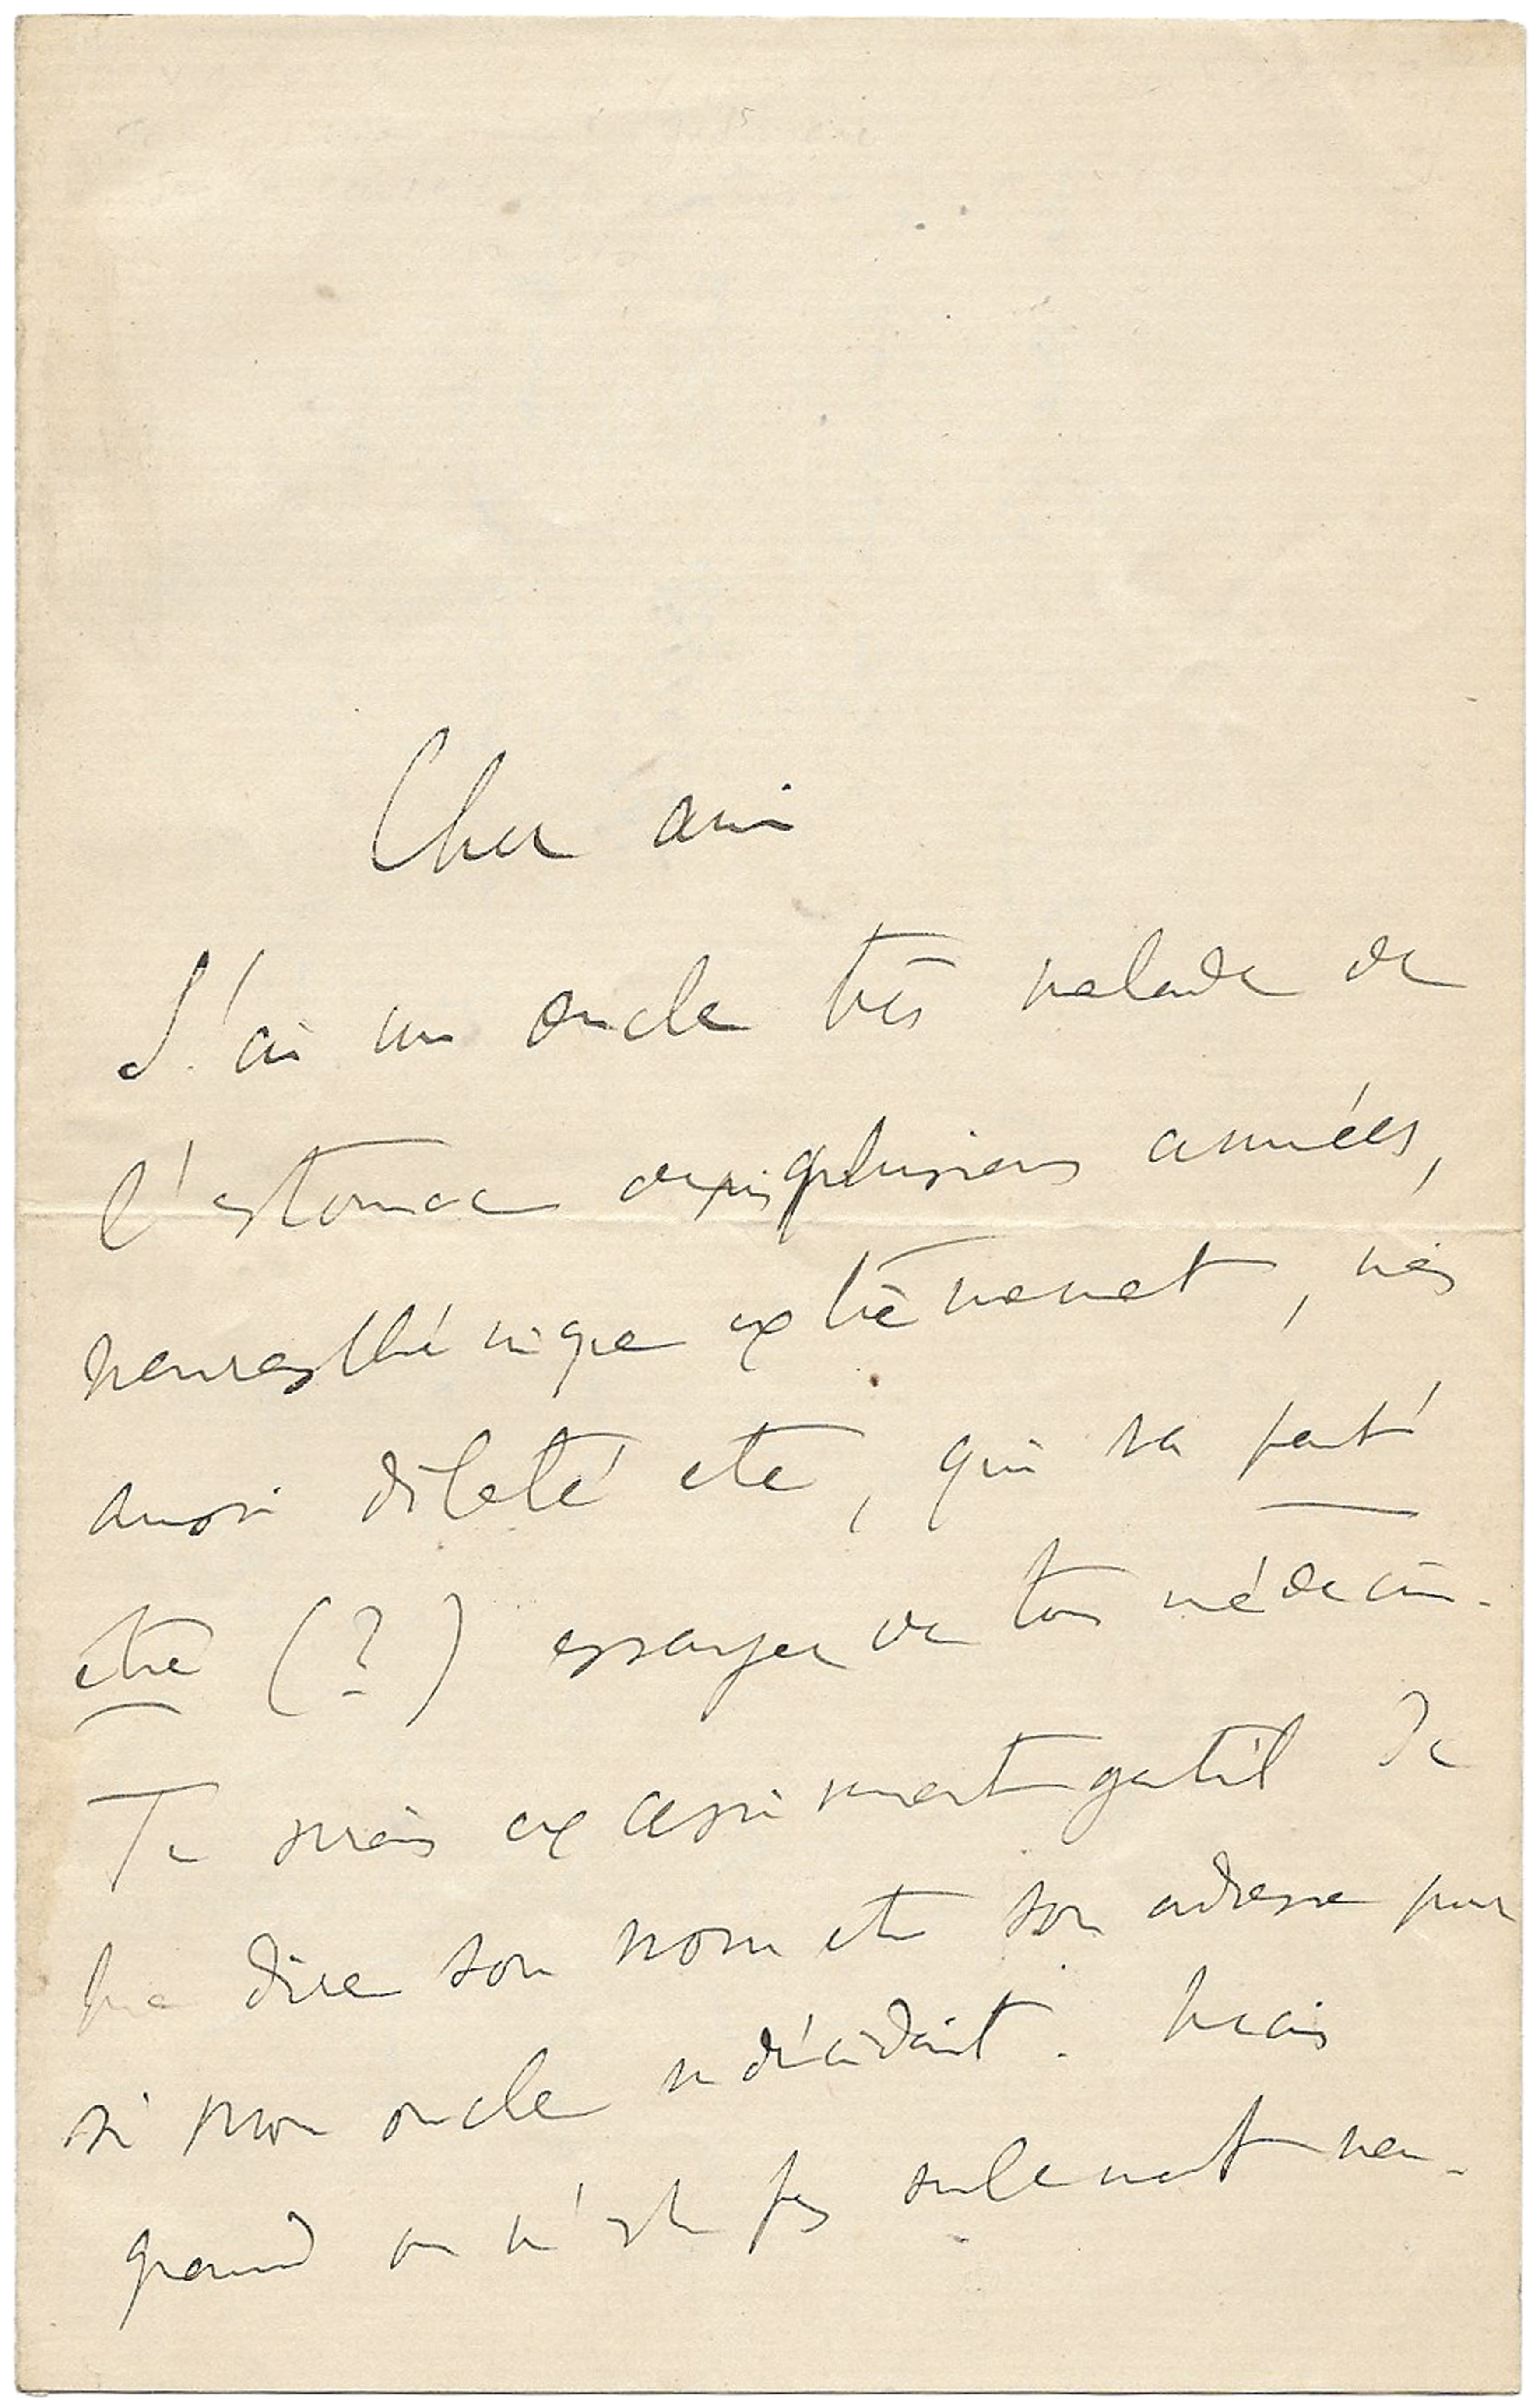 Cher ami
J'ai un oncle très malade de
l'estomac depuis plusieurs années,
neurasthénique extrêmement, mais
aussi dilaté etc, qui va peut
être (?) essayer de ton médecin.
Tu serais excessivement gentil de
me dire son nom et son adresse pour
si mon oncle se décidait. Mais
quand on n'est pas seulement neu-